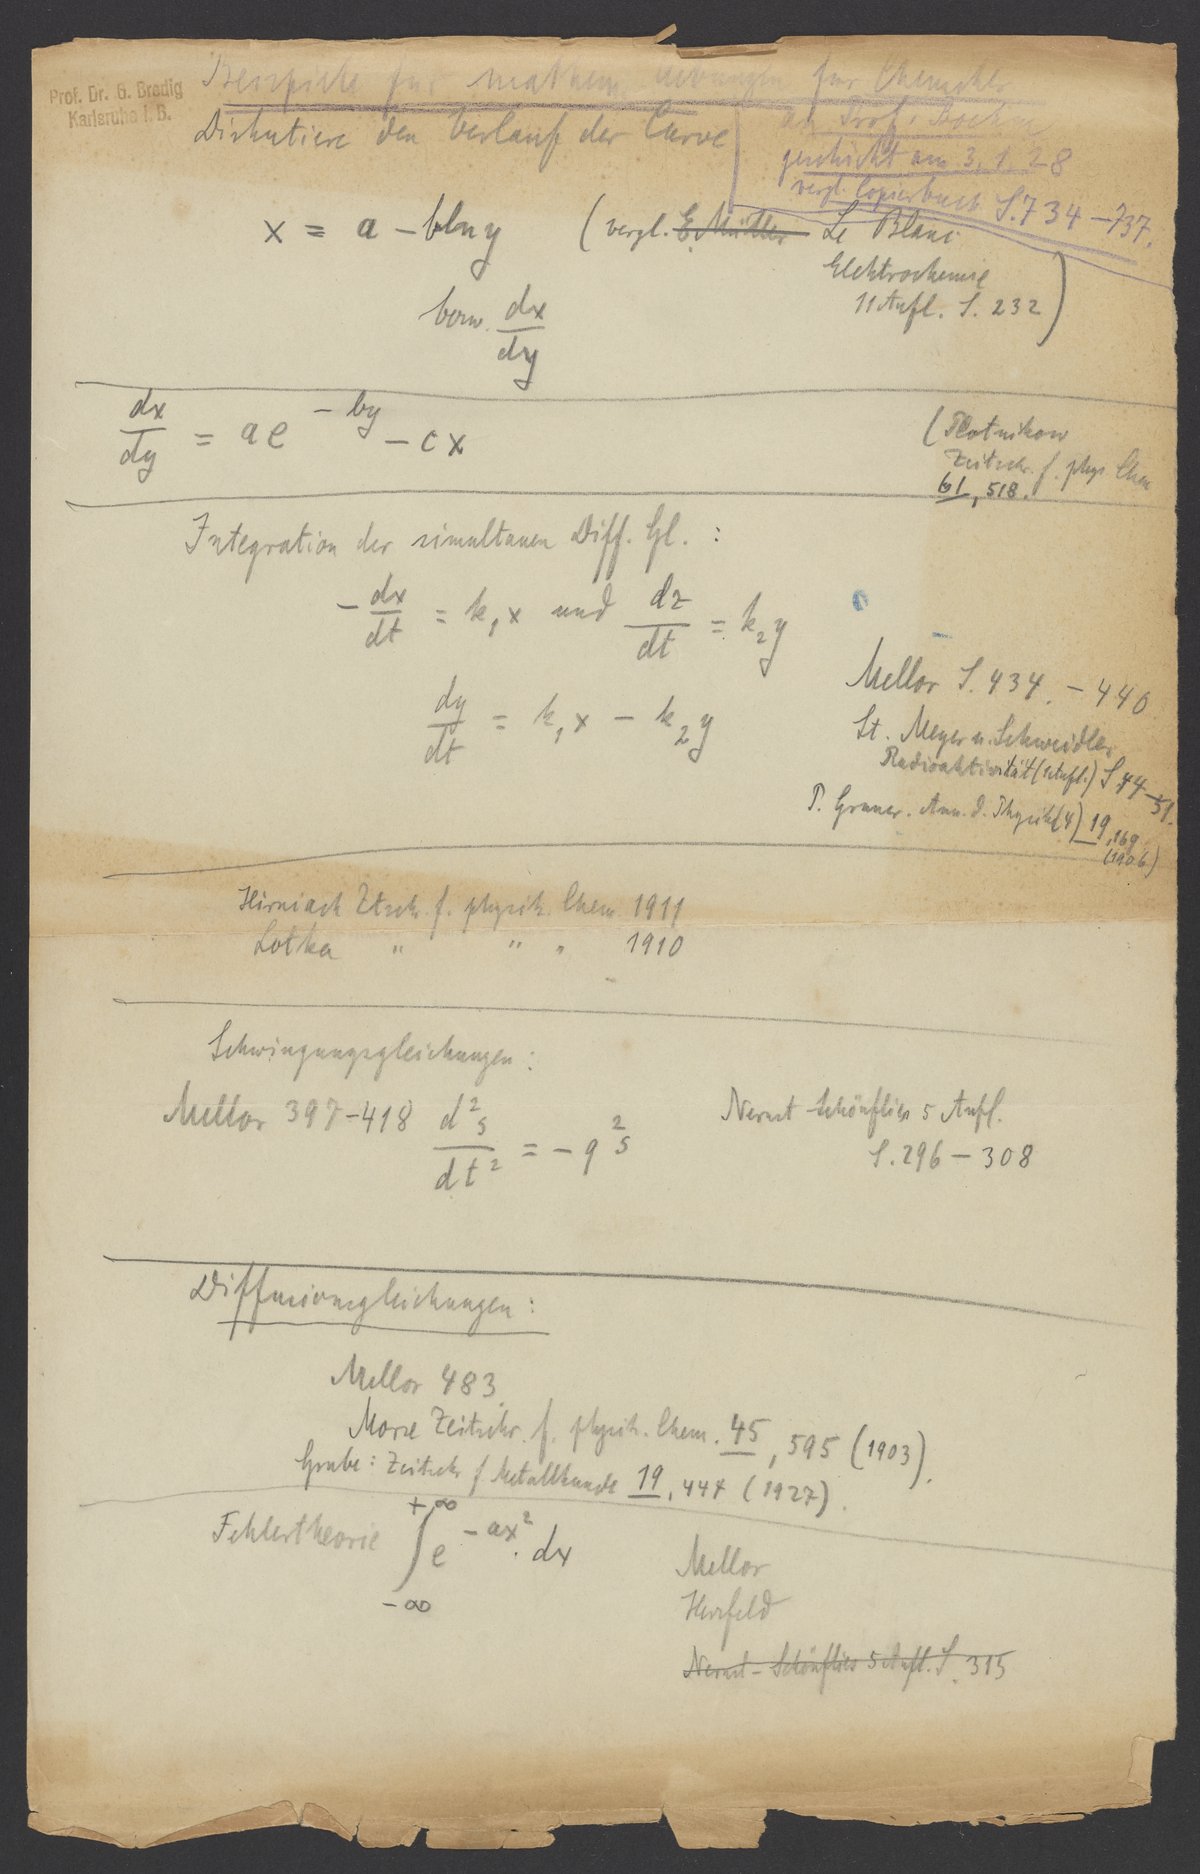 Prof. Dr. G. Bredig
Karlsruhe i. B.
Beispiele für mathem. Uebungen für Chemiker
an Prof. Boehm
geschickt am 3. 1. 28
vergl. Copierbuch S. 734 – 737.
Diskutiere den Verlauf der Curve
x = a – b ln y (vergl. E. Müller Le Blanc
Elektrochemie
11 Aufl. S. 232)
bezw. dx/dy
dx/dy = a e^{-by} – c x
(Plotnikow
Zeitschr. f. phys Chem
61, 518.
Integration der simultanen Diff. Gl. :
– dx/dt = k₁x und dz/dt = k₂y
dy/dt = k₁x – k₂y
Mellor S. 434. – 440
St. Meyer u. Schweidler
Radioaktivität (1 Aufl.) S 44–51.
P. Gruner. Ann. d. Physik (4) 19, 169
(1906)
Hirniack Ztsch. f. physik. Chem 1911
Lotka " " " 1910
Schwingungsgleichungen:
Mellor 397–418 d²s/dt² = – q²s
Nernst Schönflies 5 Aufl.
S. 296 – 308
Diffusionsgleichungen:
Mellor 483
Morse Zeitschr. f. physik. Chem. 45, 595 (1903).
Grube: Zeitschr f. Metallkunde 19, 447 (1927).
Fehlertheorie ∫_{-∞}^{+∞} e^{-ax²}. dx
Mellor
Herzfeld
Nernst – Schönflies 5 Aufl. S. 315